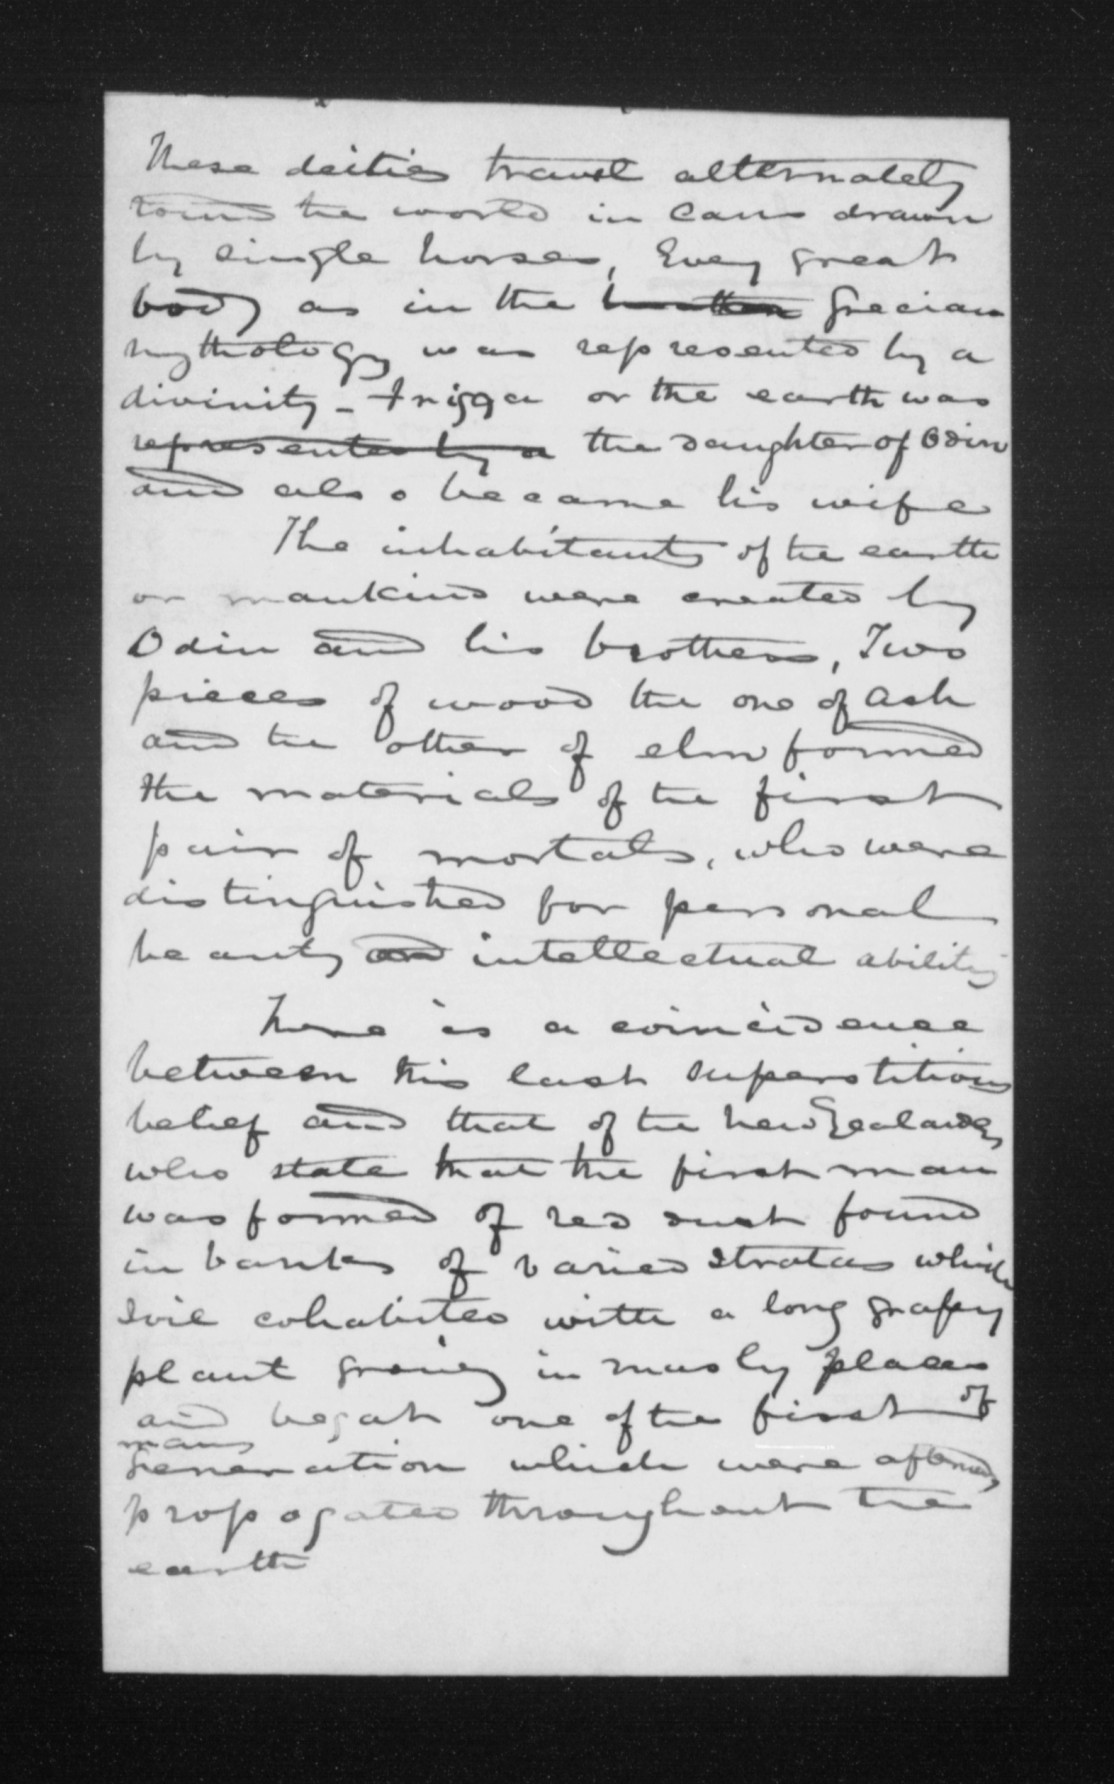 These deities travel alternately
round the world in cars drawn
by single horses, Every great
body as in the Grecian
mythology was represented by a
divinity - Frigga or the earth was
represented by a the daughter of Odin
and also became his wife
The inhabitants of the earth
or mankind were created by
Odin and his brothers, Two
pieces of wood the one of ash
and the other of elm formed
the materials of the first
pair of mortals, who were
distinguished for personal
beauty and intellectual ability
There is a coincidence
between this last superstitious
belief and that of the New Zealanders
who state that the first man
was formed of red dust found
in banks of varied stratas which
soil cohabited with a long grassy
plant growing in places
and begat one of the first of
mans
generation which were afterwards
propogated throughout the
earth